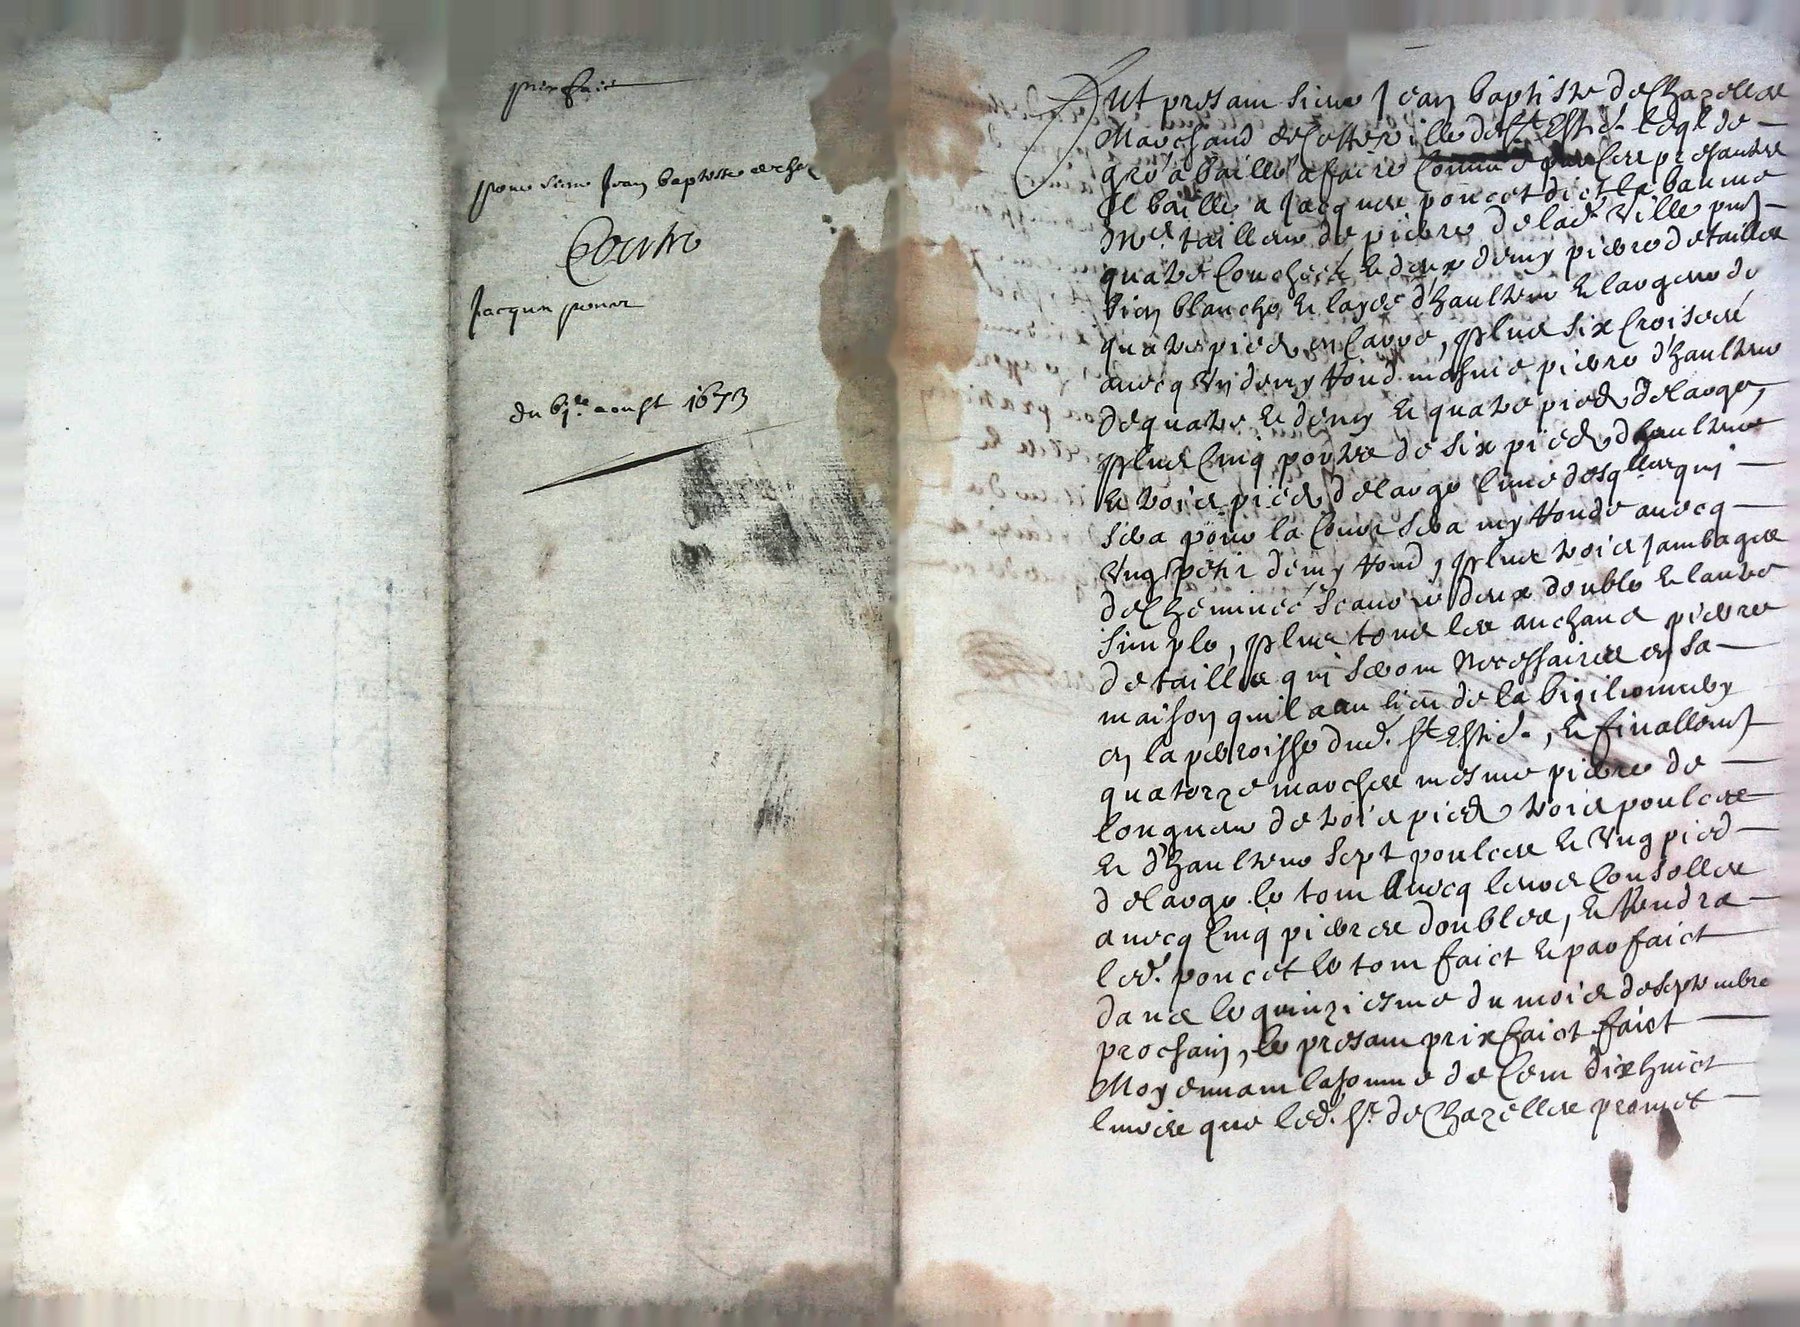 prix faict
pour sieur Jean baptiste de chaz
Contre
Jacques poncet
du 6j.e aoust 1673
Fut presant sieur Jean baptiste de Chazelles
Marchand de Cette ville de St Estie. lequel de
gré a baillé a faire Comme par Ces presantes
Il baille a Jacques poncet dict la baume
Me. tailleur de pierre de lad. Ville pnt
quatre Couches et deux demy pierre de taille
bien blanche et layée d'haulteur et largeur de
quatre pied en Carre, plus six Croisees
avecq Un demy Rond mesme pierre d'haulteur
de quatre et demy et quatre pieds de large,
plus Cinq portes de six pieds d'haulteur
et trois pieds de large l'une desqlles qui
sera pour la Cour sera my Ronde avecq
Ung petit demy Rond, plus trois jambages
de Cheminée scavoir deux double et lautre
simple, plus tous les anchans pierre
de taille qui seront Necessaires en sa
maison quil a au lieu de la
en la parroisse dud. St Estie., et finallemt
quatorze marches mesme pierre de
longueur de trois pieds trois poulces
et d'haulteur sept poulces et Ung pied
de large le tout avecq leurs Consolles
avecq Cinq pierres doubles, et Rendra
led. poncet le tout faict et parfaict
dans le quinziesme du mois de septembre
prochain, le presant prix faict faict
Moyennant la somme de Cent dix huict
livres que led. Sr. de Chazelles promet